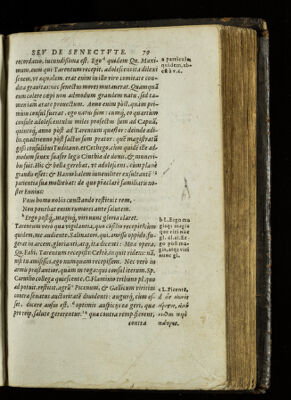 SEV DE SENECTVTE. 79
recordatio, iucundissima est. Ego quidem Qu. Maxi
mum, eum qui Tarentum recepit, adolescens ita dilexi
senem, ut æqualem. erat enim in illo uiro comitate con-
dita grauitas: nec senectus mores mutauerat. Quanquā
eum colere cœpi non admodum grandem natu, sed ta-
men iam ætate prouectum. Anno enim post, quàm pri-
mùm consul fuerat, ego natus sum: cumq́; eo quartum
consule adolescentulus miles profectus sum ad Capuā,
quintoq́; anno post ad Tarentum quæstor: deinde ædi
lis: quadriennio post factus sum prætor: quē magistratū
gessi consulibus Tuditano, et Cethego, cùm quidē ille ad
modum senex suasor legis Cinthiæ de donis & muneri-
bus fuit. Hic & bella gerebat, ut adolescens, cum planè
grandis esset: & Hannibalem iuueniliter exultantē
patientia sua molliebat: de quo præclarè familiaris no-
ster Ennius:
Vnus homo nobis cunctando restituit rem,
Non ponebat enim rumores ante salutem:
Ergo postq́; magisq́; uiri nunc gloria claret.
Tarentum uero qua uigilantia, quo consilio recepit? cùm
quidem, me audiente, Salinatori, qui, amisso oppido, fu-
gerat in arcem, glorianti, atq; ita dicenti: Mea opera,
Qu. Fabi, Tarentum recepisti: Certè, inquit ridens: nā,
nisi tu amisisses, ego nunquam recepissem. Nec uerò in
armis præstantior, quàm in toga: qui consul iterum, Sp.
Caruilio collega quiescente, C. Flaminio tribuno pl. quo
ad potuit, restitit, agrū Picenum, & Gallicum uiritim
contra senatus auctoritatē diuidenti: augurq́; cùm es-
set, dicere ausus est, optimis auspicijs ea geri, quæ
pro reip. salute gererentur: quæ contra remp. ferrent,
contra
a particula,
quidem, ab-
est à v. c.
b L. Ergo ma
gisq́; magis
gl. al. at. Er-
go post ma-
gisq́; uiri
nunc gl.
c L. Picentē,